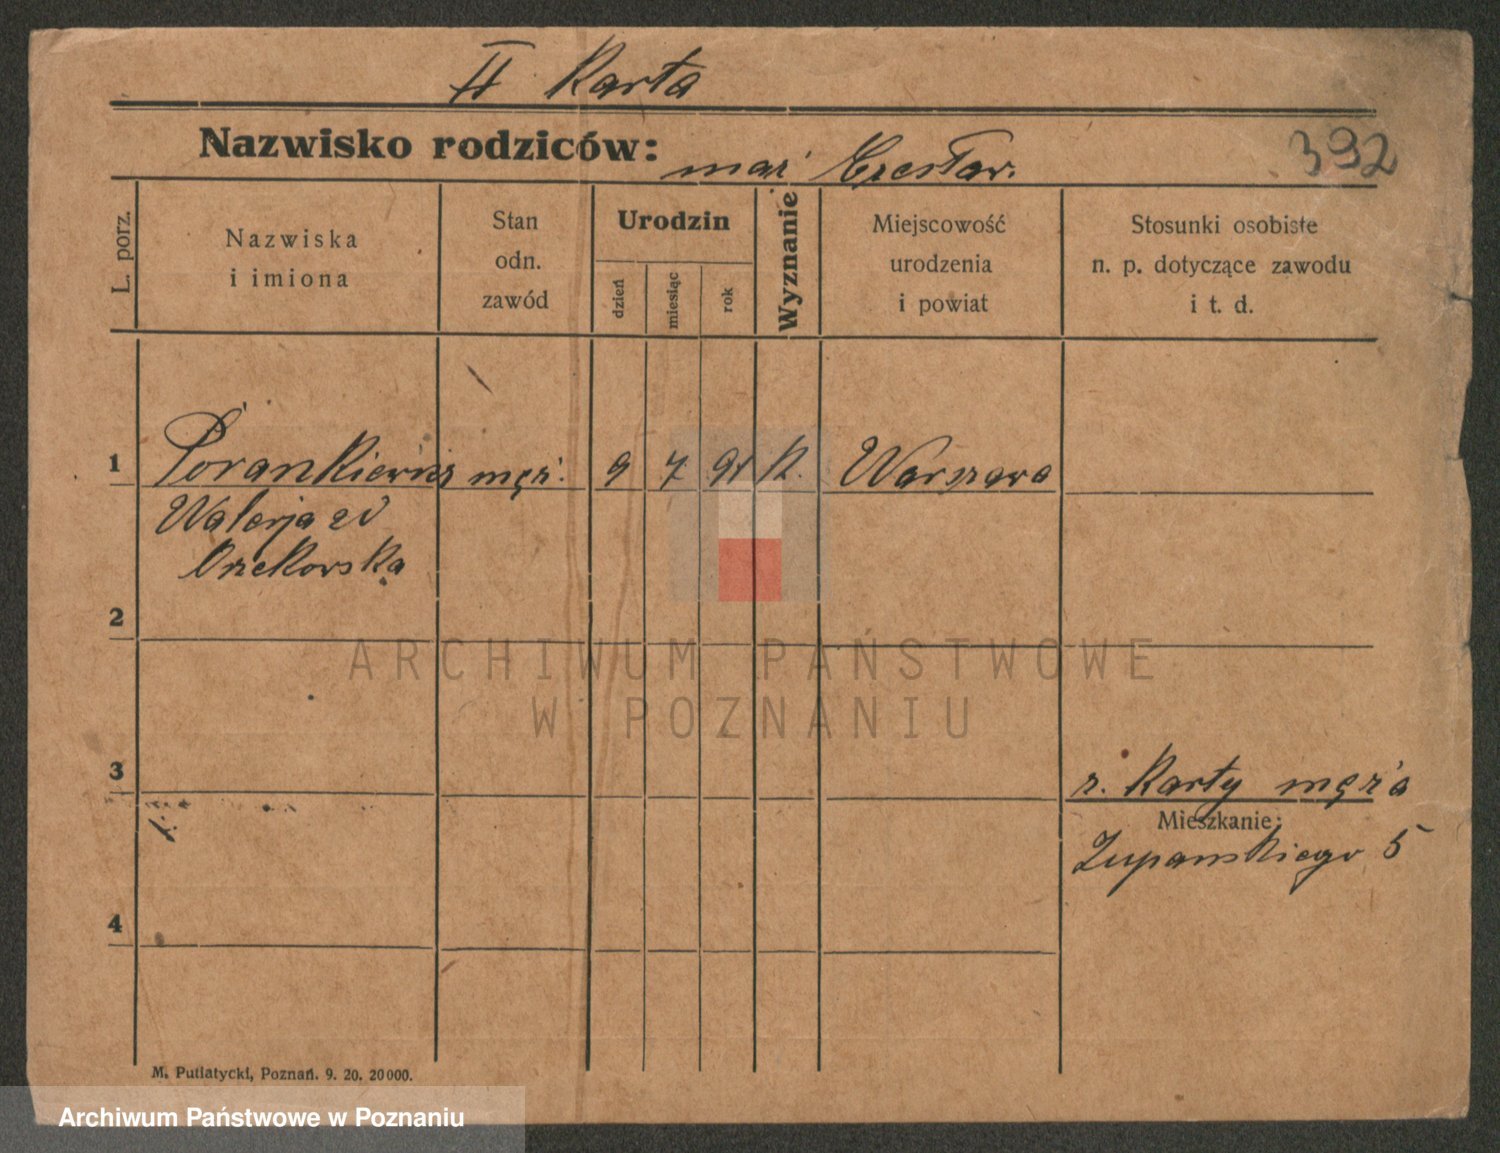 II Karta
Nazwisko rodziców: mąż Czesław.
392
L. porz.
Nazwiska
i imiona
Stan
odn.
zawód
Urodzin
dzień
miesiąc
rok
Wyznanie
Miejscowość
urodzenia
i powiat
Stosunki osobiste
n. p. dotyczące zawodu
i t. d.
1 Porankiewicz męż. 9 7 91 K. Warszawa
Walerja zd
Orzekowska
2
ARCHIWUM PAŃSTWOWE
W POZNANIU
3
z. Karty męż'a
Mieszkanie:
Żupanskiego 5
4
M. Putiatycki, Poznań. 9. 20. 20000.
Archiwum Państwowe w Poznaniu